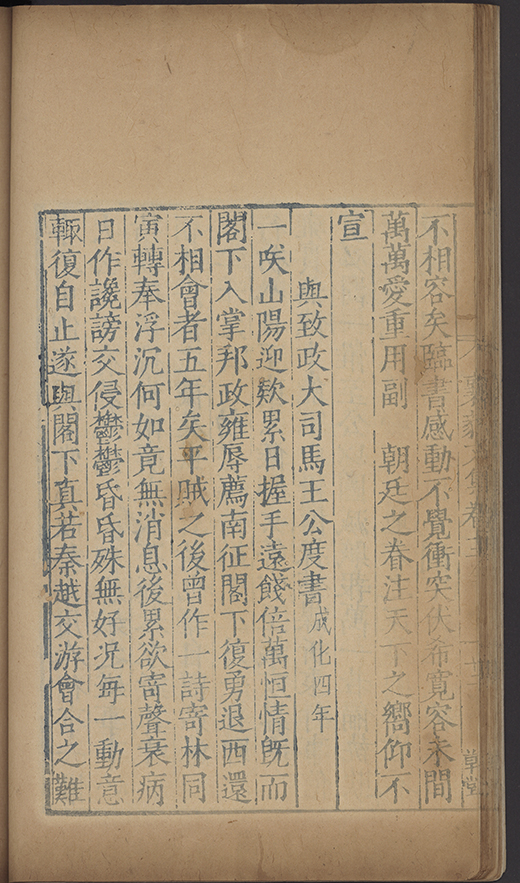 不相容矣臨書感動不覺衝突伏希寛容未間
萬萬愛重用副　朝廷之眷注天下之嚮仰不
宣
與致政大司馬王公度書成化四年
一唉山陽迎欵累日握手遠餞倍萬恒情既而
閣下入掌邦政雍辱薦南征閣下復勇退西還
不相會者五年矣平賊之後曾作一詩寄林同
寅轉奉浮沉何如竟無消息後累欲寄聲衰病
日作讒謗交侵鬱鬱昏昏殊無好况每一動意
輙復自止遂與閣下真若秦越交游會合之難